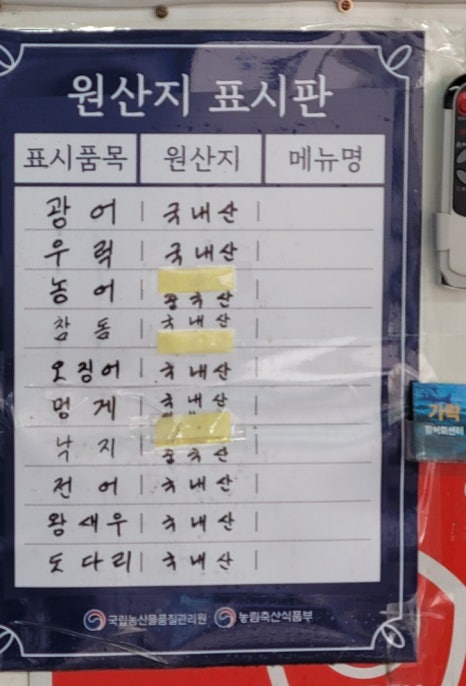 원산지 표시판
표시품목 원산지 메뉴명
광어 국내산
우럭 국내산
농어 중국산
참돔 국내산
오징어 국내산
멍게 국내산
낙지 중국산
전어 국내산
왕새우 국내산
도다리 국내산
국립농산물품질관리원 농림축산식품부
가락
활어회센터